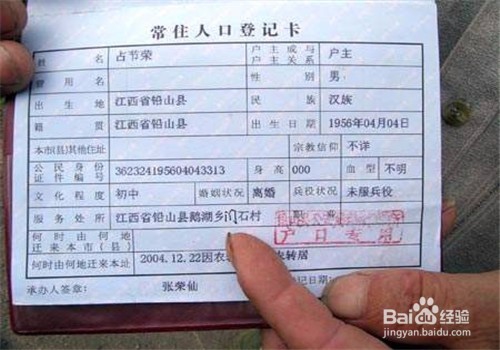 常住人口登记卡
姓 名 占节荣 户主或与户主关系 户主
曾用名 性 别 男
出生地 江西省铅山县 民 族 汉族
籍 贯 江西省铅山县 出生日期 1956年04月04日
本市(县)其他住址 宗教信仰 不详
公民身份证件编号 362324195604043313 身 高 000 血 型 不明
文化程度 初中 婚姻状况 离婚 兵役状况 未服兵役
服务处所 江西省铅山县鹅湖乡门石村
何时由何地迁来本市(县) 户口专用
何时由何地迁来本址 2004.12.22因农 农转居
承办人签章： 张荣仙 记日期：
Bai 百度 经验
jingyan.baidu.com